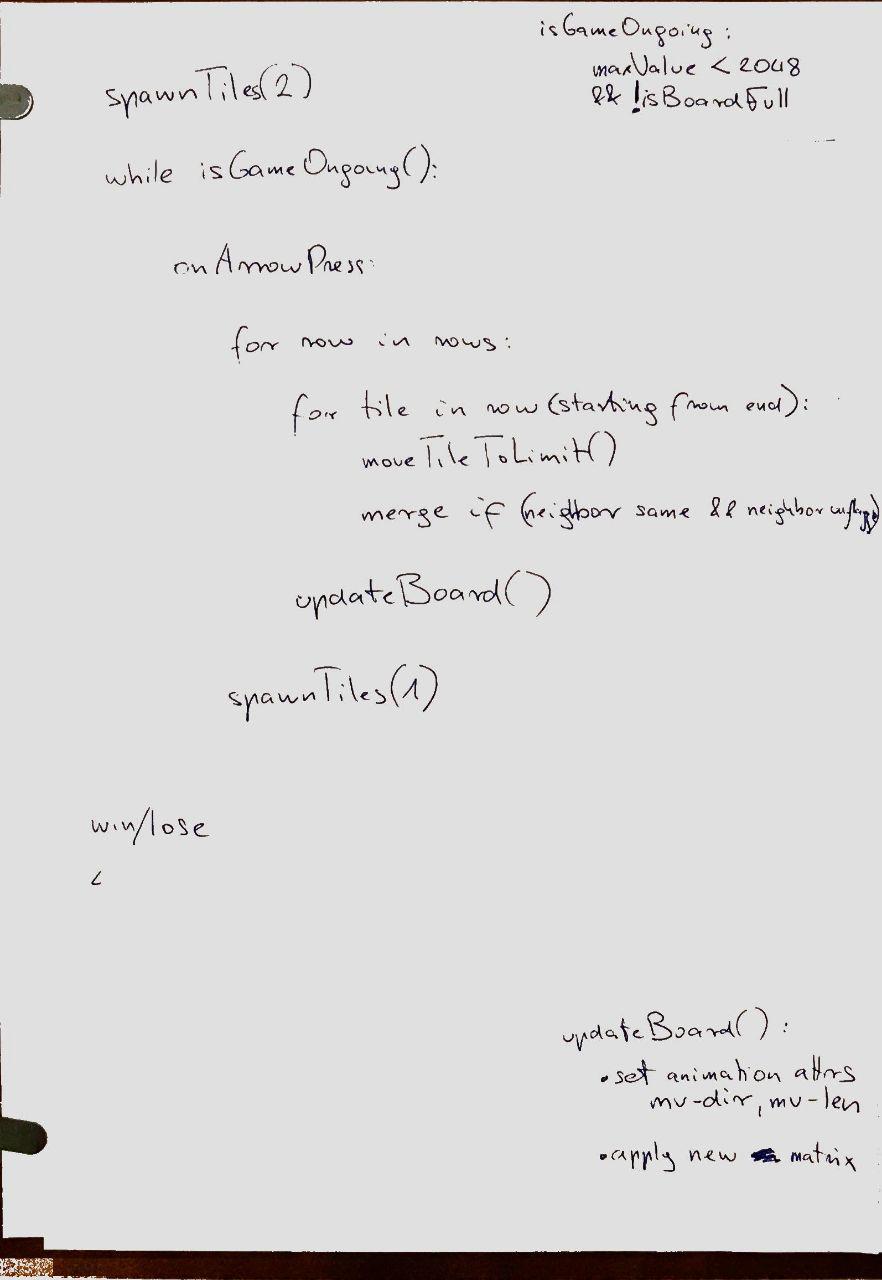 isGameOngoing:
maxValue < 2048
&& !isBoardFull
spawnTiles(2)
while isGameOngoing():
onArrowPress:
for row in rows:
for tile in row (starting from end):
moveTileToLimit()
merge if (neighbor same && neighbor
updateBoard()
spawnTiles(1)
win/lose
updateBoard():
• set animation attrs
mv-dir, mv-len
• apply new matrix